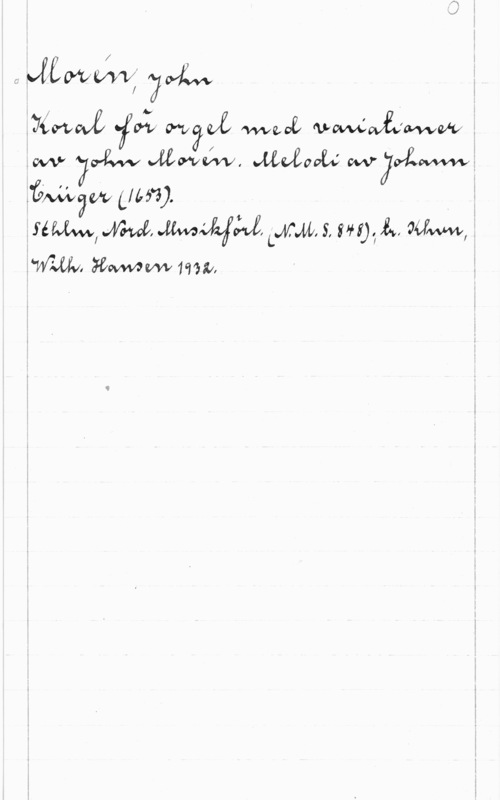 O
Morén, John
Koral för orgel med variationer
av John Morén. Melodi av Johann
Crüger (1653).
Sthlm, Nord. Musikförl. (N.M.S. 848); tr. Khvn,
Wilh. Hansen 1932.